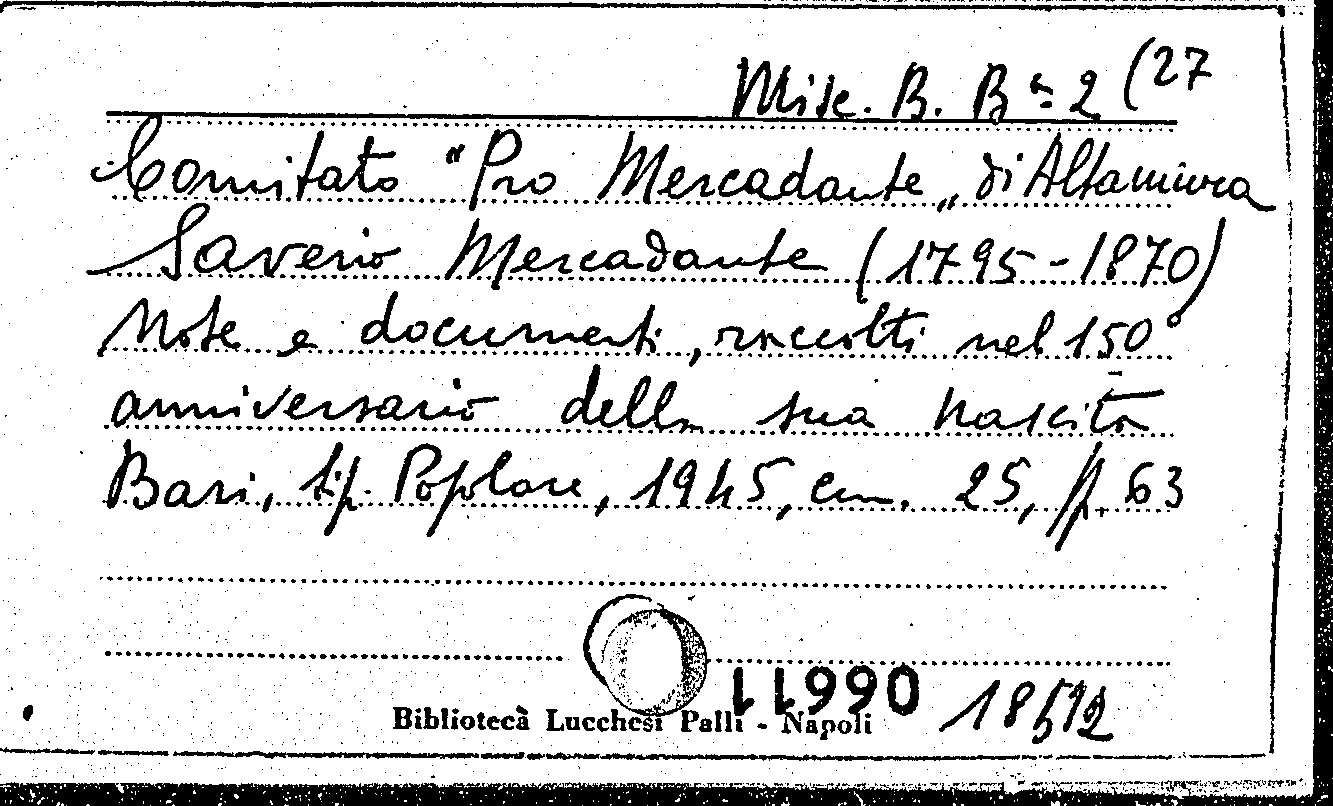 Misc. B. Bª 2 (27
Comitato "Pro Mercadante„ di Altamura
Saverio Mercadante (1795-1870)
Note e documenti, raccolti nel 150°
anniversario della sua nascita
Bari, tip. Popolare, 1945, cm. 25, pp. 63
06611
Biblioteca Lucchesi Palli - Napoli